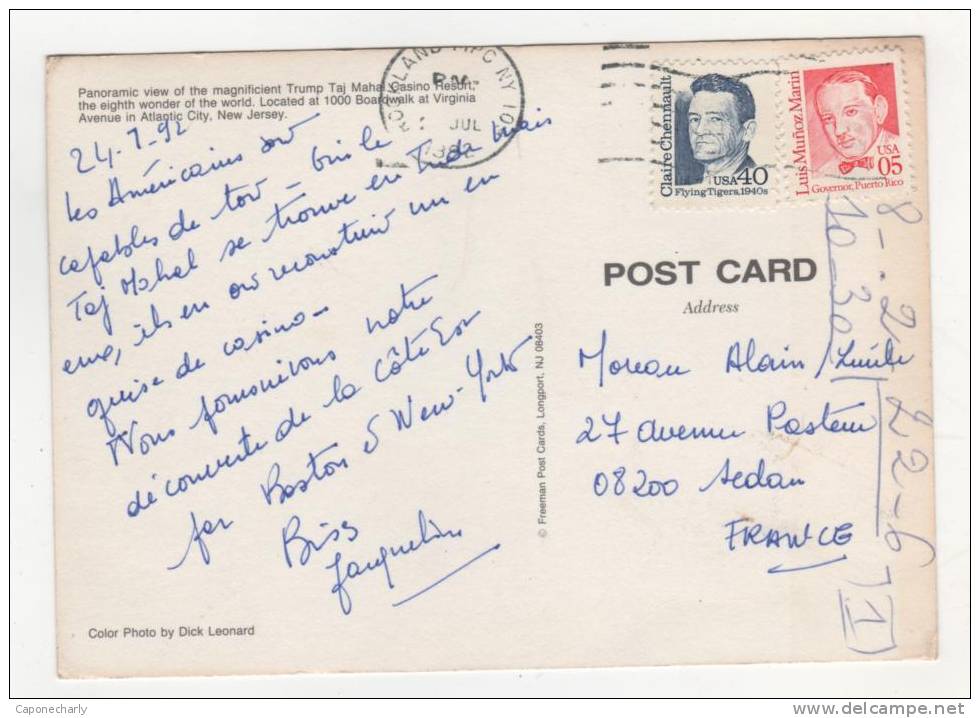 Panoramic view of the magnificient Trump Taj Mahal Casino Resort,
the eighth wonder of the world. Located at 1000 Boardwalk at Virginia
Avenue in Atlantic City, New Jersey.
24-7-92
Les Américains sont
capables de tout - Oui le
Taj Mahal se trouve en Inde mais
eux, ils en ont reconstruit un en
guise de casino -
Nous poursuivons notre
découverte de la Côte Est
par Boston et New-York
Biss
Jacqueline
Color Photo by Dick Leonard
© Freeman Post Cards, Longport, NJ 08403
ROCKLAND MPC NY 109
PM
JUL
1992
Claire Chennault
USA 40
Flying Tigers, 1940s
Luis Muñoz Marín
USA
05
Governor, Puerto Rico
POST CARD
Address
Moreau Alain/
27 avenue Pasteur
08200 Sedan
FRANCE
8-.2
22-6
10-30
(1)
Caponecharly
www.delcampe.net